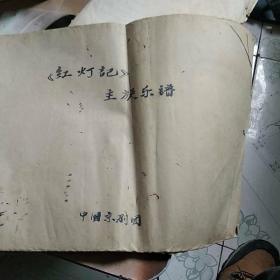 《红灯記》
主旋乐譜
中国京剧团